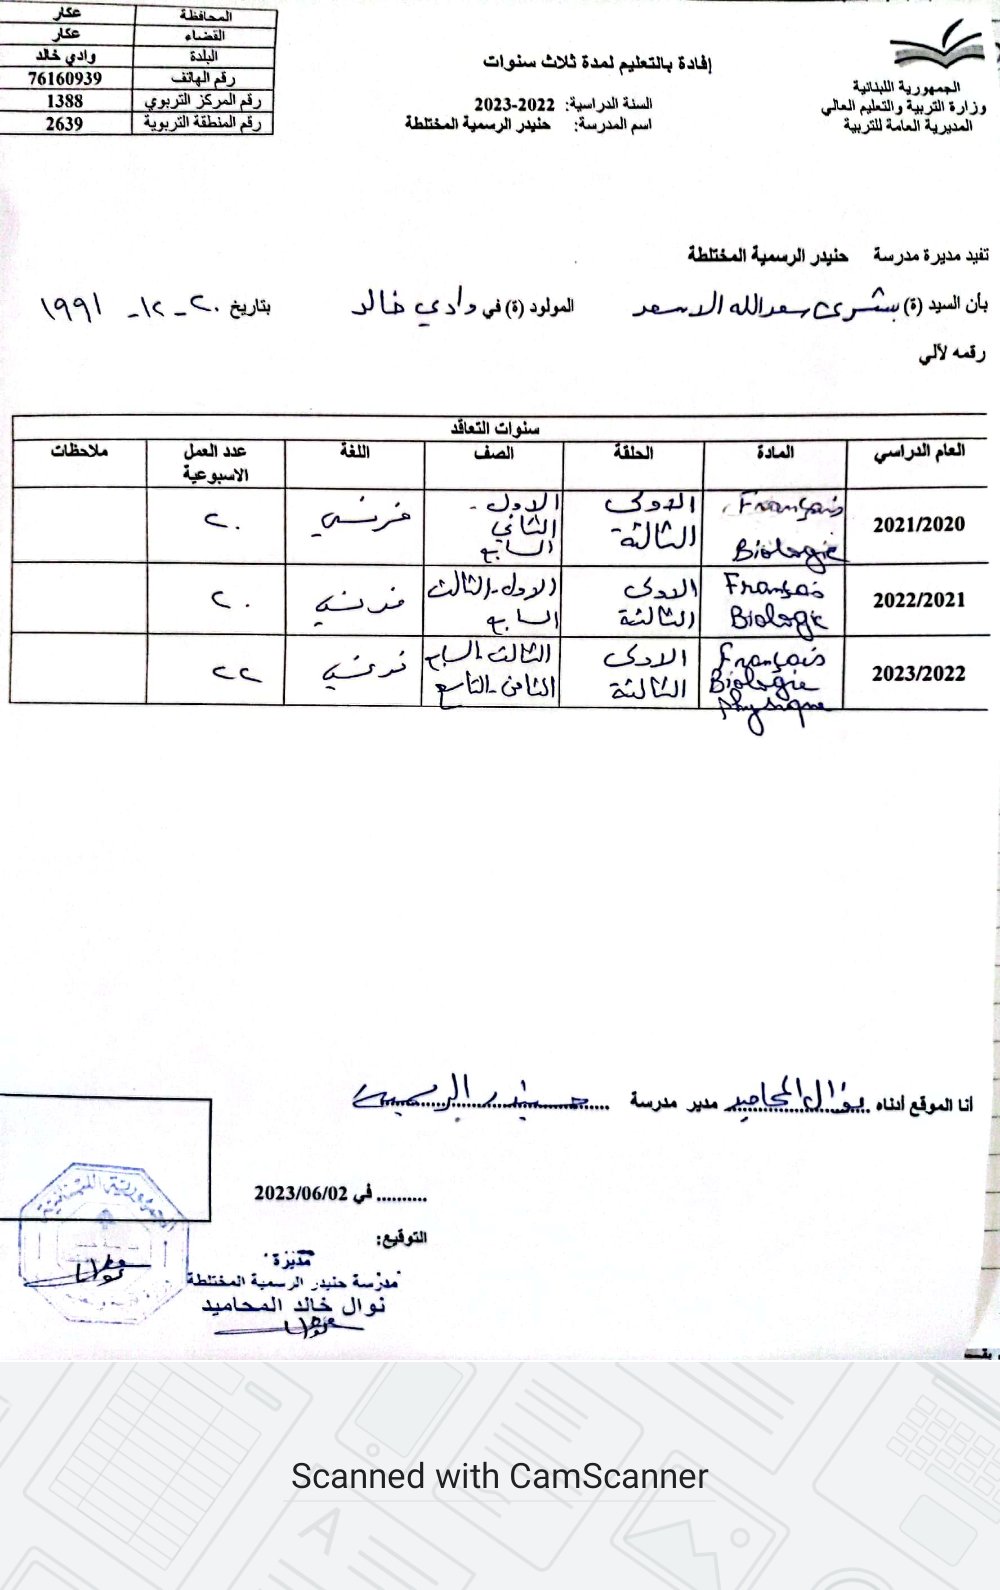 الجمهورية اللبنانية
وزارة التربية والتعليم العالي
المديرية العامة للتربية
إفادة بالتعليم لمدة ثلاث سنوات
السنة الدراسية: 2022-2023
اسم المدرسة: حنيدر الرسمية المختلطة
المحافظة عكار
القضاء عكار
البلدة وادي خالد
رقم الهاتف 76160939
رقم المركز التربوي 1388
رقم المنطقة التربوية 2639
تفيد مديرة مدرسة حنيدر الرسمية المختلطة
بأن السيد (ة) بشرى سعدالله الاسعد المولود (ة) في وادي خالد بتاريخ ٢٠ - ١٢ - ١٩٩١
رقمه لألي
سنوات التعاقد
العام الدراسي المادة الحلقة الصف اللغة عدد العمل الاسبوعية ملاحظات
2021/2020 Français Biologie الاولى الثالثة الاول - الثاني السابع فرنسي ٢٠
2022/2021 Français Biologie الاولى الثالثة الاول - الثالث السابع فرنسي ٢٠
2023/2022 Français Biologie Physique الاولى الثالثة الثالث - السابع الثامن - التاسع فرنسي ٢٢
أنا الموقع أدناه نوال المحاميد مدير مدرسة حنيدر الرسمية
.......... في 2023/06/02
التوقيع:
مديرة
مدرسة حنيدر الرسمية المختلطة
نوال خالد المحاميد
الجمهورية اللبنانية
Scanned with CamScanner